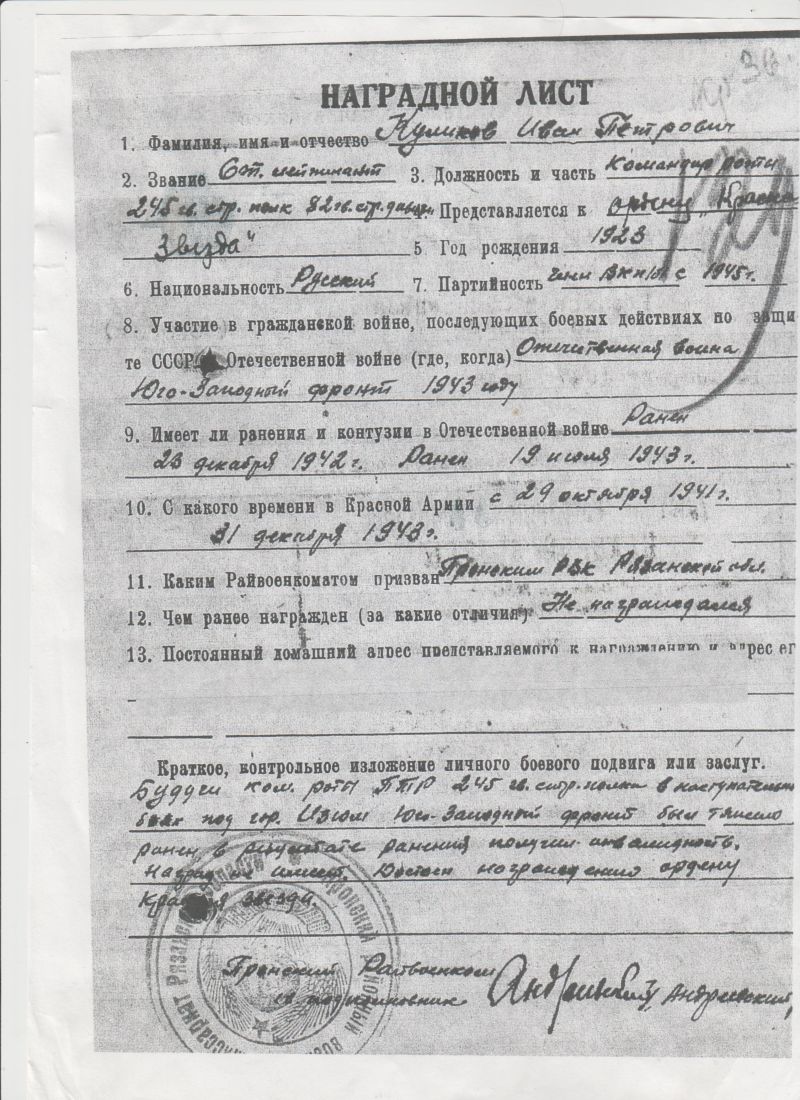 НАГРАДНОЙ ЛИСТ
1. Фамилия, имя и отчество Куликов Иван Петрович
2. Звание Ст. лейтинант 3. Должность и часть Командир роты
245 гв. стр. полк 82 гв. стр. дивиз. Представляется к ордену „Красна
Звезда"
5 Год рождения 1923
6. Национальность Русский 7. Партийность член ВКП/б с 1945г.
8. Участие в гражданской войне, последующих боевых действиях по защи
те СССР Отечественной войне (где, когда) Отечественная война
Юго-Западный фронт 1943 году
9. Имеет ли ранения и контузии в Отечественной войне Ранен
23 декабря 1942 г. Ранен 19 июля 1943 г.
10. С какого времени в Красной Армии с 29 октября 1941 г.
31 декабря 1943 г.
11. Каким Райвоенкоматом призван Пронским РВК Рязанской обл.
12. Чем ранее награжден (за какие отличия) Не награждался
13. Постоянный домашний адрес представляемого к награждению и адрес ег
Краткое, контрольное изложение личного боевого подвига или заслуг.
Будучи ком. роты ПТР 245 гв. стр. полка в наступательн
боях под гор. Изюм Юго-Западный фронт был тяжело
ранен в результате ранения получил инвалидность.
Наград не имеет. Достоин награждению ордену
Красная звезда.
Пронский Райвоенком
гв подполковник Андреевский